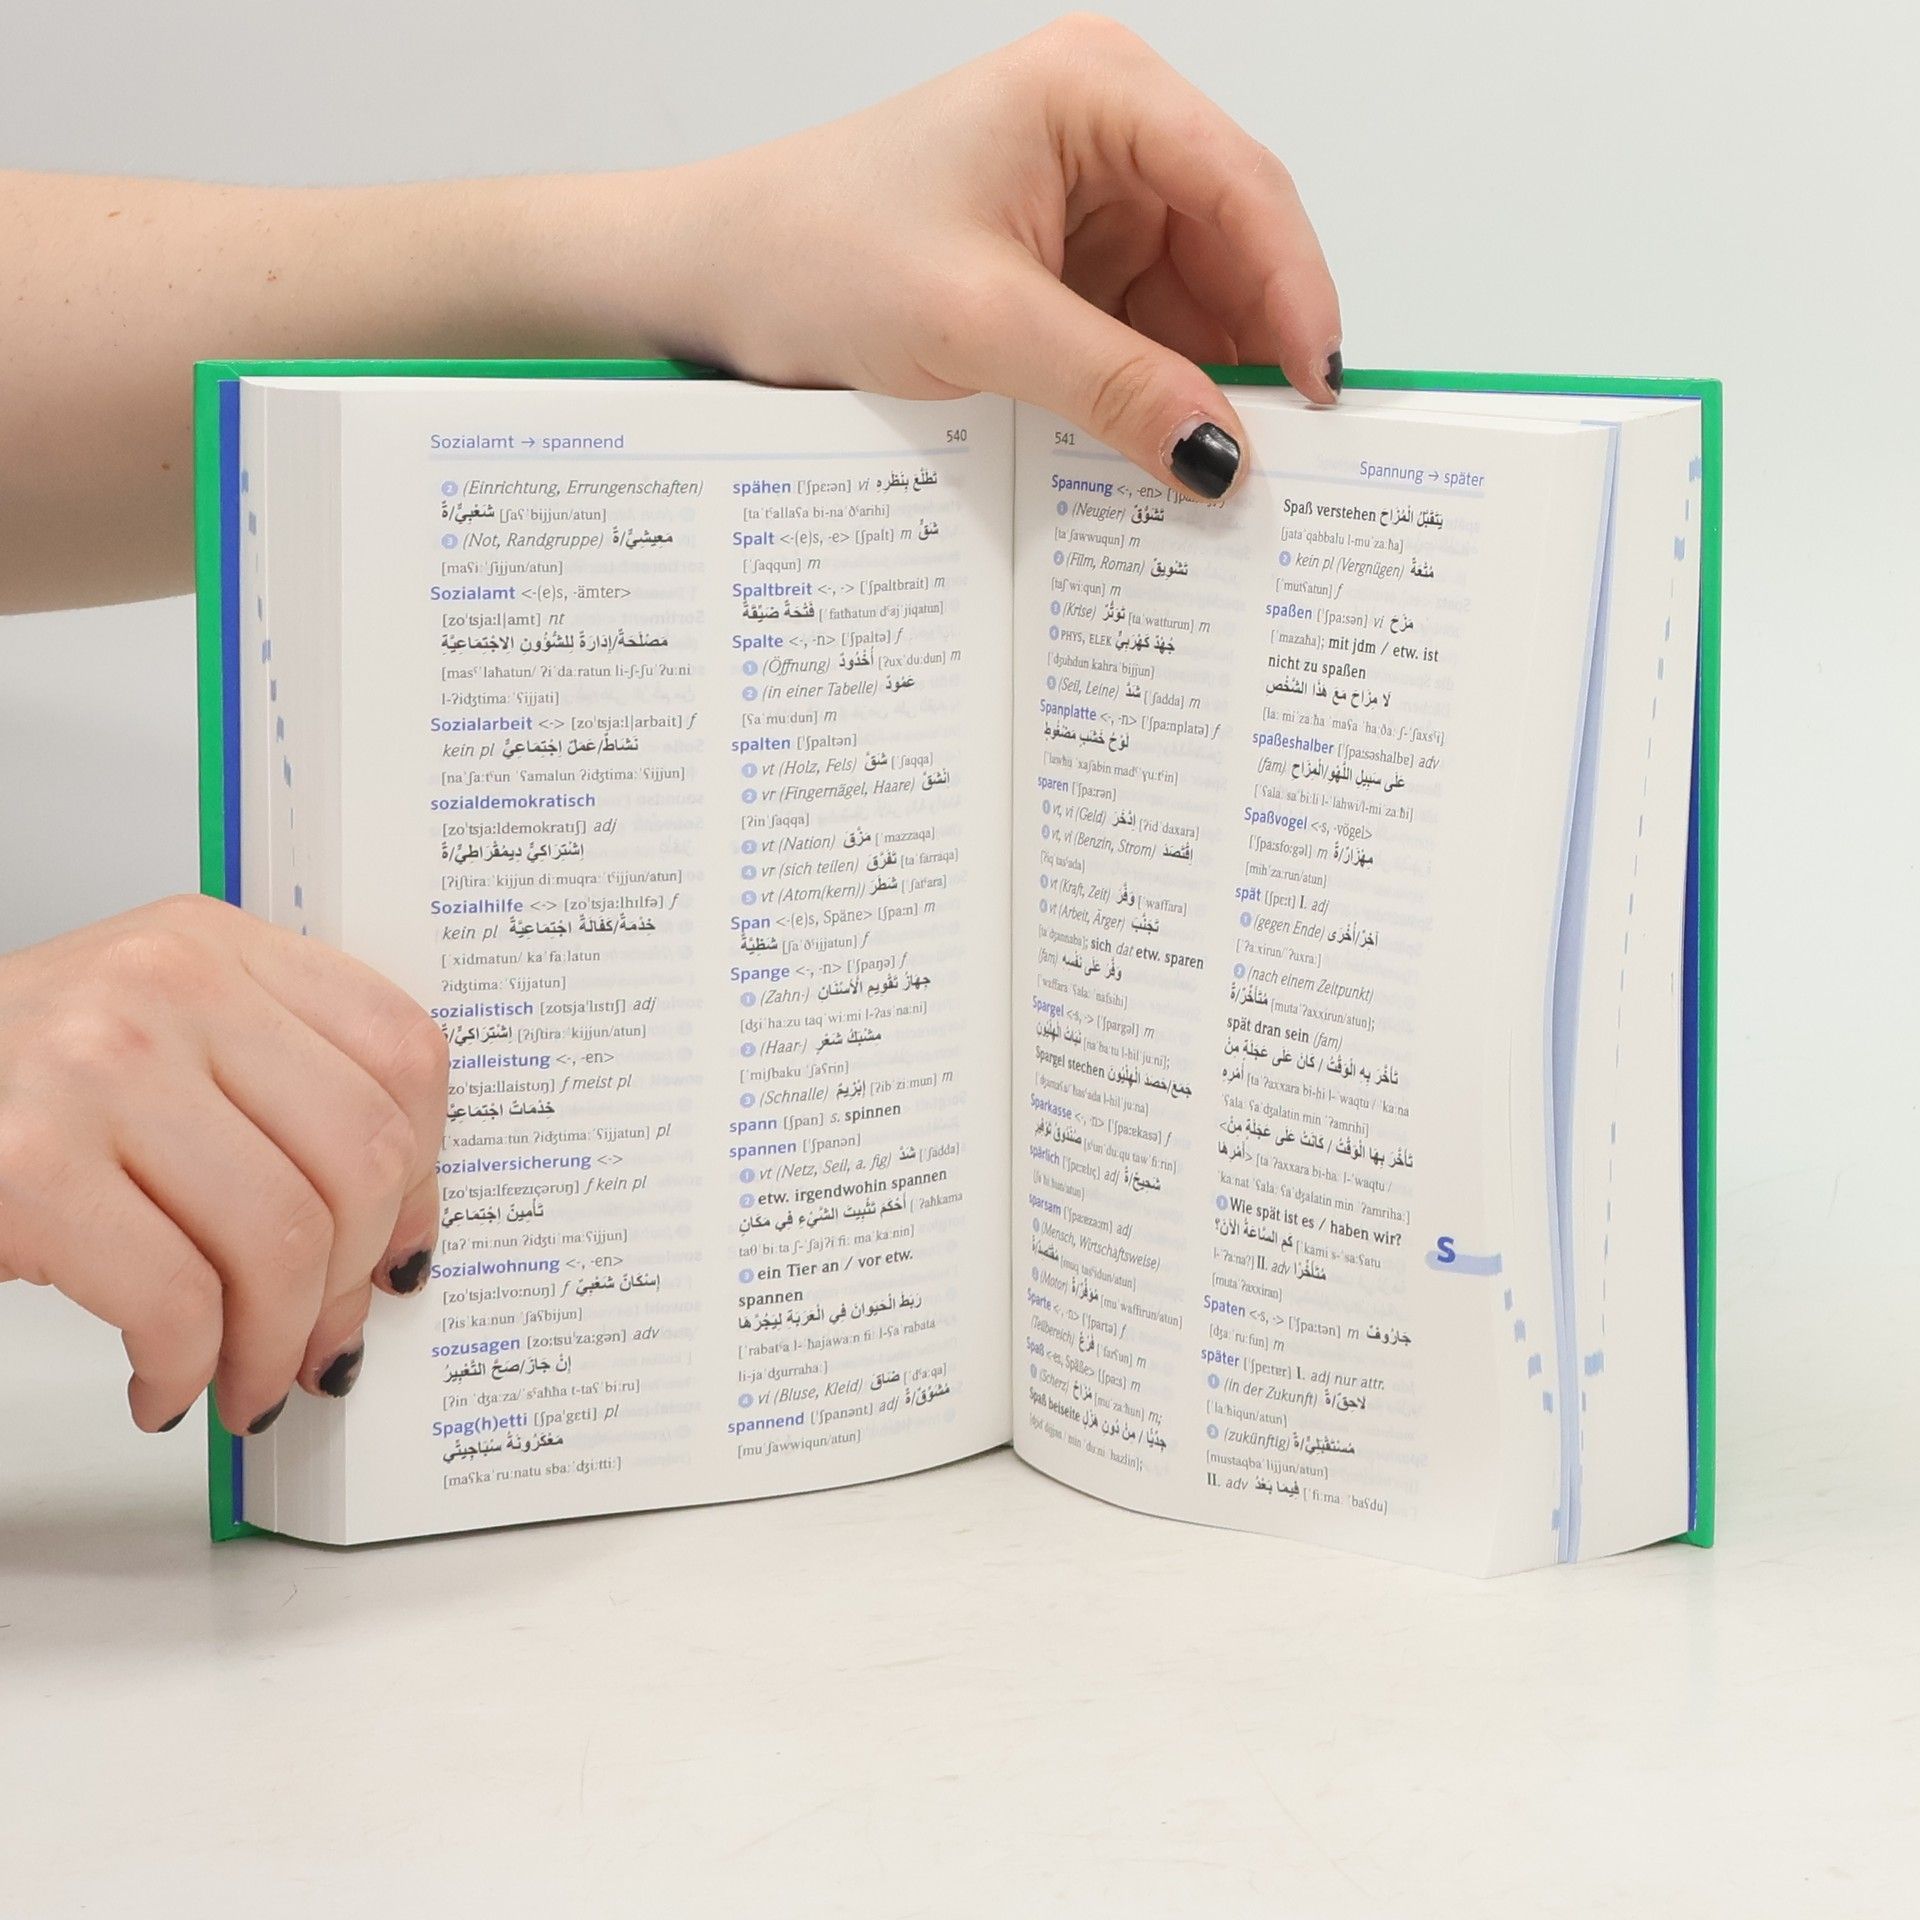 Sozialamt → spannend
540
2 (Einrichtung, Errungenschaften)
شَعْبِيٌّ/ةٌ [ʃaʕˈbijjun/atun]
3 (Not, Randgruppe) مَعِيشِيٌّ/ةٌ
[maʕiːˈʃijjun/atun]
Sozialamt <-(e)s, -ämter>
[zoˈtsja:l|amt] nt
مَصْلَحَةٌ/إدَارَةٌ لِلشُّؤُونِ الِاجْتِمَاعِيَّةِ
[masˤˈlaħatun/ ʔiˈda:ratun li-ʃ-ʃuˈʔu:ni
l-ʔidʒtima:ˈʕijjati]
Sozialarbeit <-> [zoˈtsja:l|arbait] f
kein pl نَشَاطٌ/عَمَلٌ اِجْتِمَاعِيٌّ
[naˈʃa:tˤun ˈʕamalun ʔidʒtima:ˈʕijjun]
sozialdemokratisch
[zoˈtsja:ldemokratɪʃ] adj
اِشْتِرَاكِيٌّ دِيمُقْرَاطِيٌّ/ةٌ
[ʔiʃtira:ˈkijjun di:muqra:ˈtˤijjun/atun]
Sozialhilfe <-> [zoˈtsja:lhɪlfə] f
kein pl خِدْمَةٌ/كَفَالَةٌ اِجْتِمَاعِيَّةٌ
[ˈxidmatun/ kaˈfa:latun
ʔidʒtima:ˈʕijjatun]
sozialistisch [zotsjaˈlɪstɪʃ] adj
اِشْتِرَاكِيٌّ/ةٌ [ʔiʃtira:ˈkijjun/atun]
ozialleistung <-, -en>
zoˈtsja:llaistʊŋ] f meist pl
خِدْمَاتٌ اِجْتِمَاعِيَّةٌ
[ˈxadama:tun ʔidʒtima:ˈʕijjatun] pl
Sozialversicherung <->
[zoˈtsja:lfɛɐzɪçərʊŋ] f kein pl
تَأْمِينٌ اِجْتِمَاعِيٌّ
[taʔˈmi:nun ʔidʒtimaˈʕijjun]
Sozialwohnung <-, -en>
[zoˈtsja:lvo:nʊŋ] f إسْكَانٌ شَعْبِيٌّ
[ʔisˈka:nun ˈʃaʕbijun]
sozusagen [zo:tsuˈza:gən] adv
إنْ جَازَ/صَحَّ التَّعْبِيرُ
[ʔin ˈdʒa:za/ˈsˤaħħa t-taʕˈbi:ru]
Spag(h)etti [ʃpaˈgɛti] pl
مَعْكَرُونَةُ سْبَاجِيتِّي
[maʕkaˈru:natu sba:ˈdʒi:tti:]
spähen [ˈʃpɛːən] vi تَطَلَّعَ بِنَظَرِهِ
[taˈtˤallaʕa bi-naˈðˤarihi]
Spalt <-(e)s, -e> [ʃpalt] m شَقٌّ
[ˈʃaqqun] m
Spaltbreit <-, -> [ˈʃpaltbrait] m
فَتْحَةٌ ضَيِّقَةٌ [ˈfatħatun dˤajˈjiqatun]
Spalte <-, -n> [ˈʃpaltə] f
1 (Öffnung) أُخْدُودٌ [ʔuxˈdu:dun] m
2 (in einer Tabelle) عَمُودٌ
[ʕaˈmu:dun] m
spalten [ˈʃpaltən]
1 vt (Holz, Fels) شَقَّ [ˈʃaqqa]
2 vr (Fingernägel, Haare) اِنْشَقَّ
[ʔinˈʃaqqa]
3 vt (Nation) مَزَّقَ [ˈmazzaqa]
4 vr (sich teilen) تَفَرَّقَ [taˈfarraqa]
5 vt (Atom(kern)) شَطَرَ [ˈʃatˤara]
Span <-(e)s, Späne> [ʃpa:n] m
شَظِيَّةٌ [ʃaˈðˤijjatun] f
Spange <-, -n> [ˈʃpaŋə] f
1 (Zahn-) جِهَازُ تَقْوِيمِ الْأَسْنَانِ
[dʒiˈha:zu taqˈwi:mi l-ʔasˈna:ni]
2 (Haar-) مِشْبَكُ شَعْرٍ
[ˈmiʃbaku ˈʃaʕrin]
3 (Schnalle) إبْزِيمٌ [ʔibˈzi:mun] m
spann [ʃpan] s. spinnen
spannen [ˈʃpanən]
1 vt (Netz, Seil, a. fig) شَدَّ [ˈʃadda]
2 etw. irgendwohin spannen
أَحْكَمَ تَثْبِيتَ الشَّيْءِ فِي مَكَانٍ [ˈʔaħkama
taθˈbi:ta ʃ-ˈʃajʔi fi: maˈka:nin]
3 ein Tier an / vor etw.
spannen
رَبَطَ الْحَيَوَانَ فِي الْعَرَبَةِ لِيَجُرَّهَا
[ˈrabatˤa l-ħajawa:n fi: l-ʕaˈrabata
li-jaˈdʒurraha:]
4 vi (Bluse, Kleid) ضَاقَ [ˈdˤa:qa]
spannend [ˈʃpanənt] adj مُشَوِّقٌ/ةٌ
[muˈʃawwiqun/atun]
541
Spannung → später
Spannung <-, -en>
1 (Neugier) تَشَوُّقٌ
[taˈʃawwuqun] m
2 (Film, Roman) تَشْوِيقٌ
[taʃˈwi:qun] m
3 (Krise) تَوَتُّرٌ [taˈwatturun] m
4 PHYS, ELEK جُهْدٌ كَهْرَبِيٌّ
[ˈdʒuhdun kahraˈbijjun]
5 (Seil, Leine) شَدٌّ [ˈʃadda] m
Spanplatte <-, -n> [ˈʃpa:nplatə] f
لَوْحُ خَشَبٍ مَضْغُوطٍ
[ˈlawħu ˈxaʃabin madˤˈɣu:tˤin]
sparen [ˈʃpa:rən]
1 vt, vi (Geld) اِدَّخَرَ [ʔidˈdaxara]
2 vt, vi (Benzin, Strom) اِقْتَصَدَ
[ʔiqˈtasˤada]
3 vt (Kraft, Zeit) وَفَّرَ [ˈwaffara]
4 vt (Arbeit, Ärger) تَجَنَّبَ
[taˈdʒannaba]; sich dat etw. sparen
(fam) وَفَّرَ عَلَى نَفْسِهِ
[ˈwaffara ˈʕala: ˈnafsihi]
Spargel <-s, -> [ˈʃpargəl] m
نَبَاتُ الْهِلْيُونِ [naˈba:tu l-hilˈju:ni];
Spargel stechen جَمَعَ/حَصَدَ الْهِلْيُونَ
[ˈdʒamaʕa/ˈħasˤada l-hilˈju:na]
Sparkasse <-, -n> [ˈʃpa:ɐkasə] f
صُنْدُوقُ تَوْفِيرٍ [sˤunˈdu:qu tawˈfi:rin]
spärlich [ˈʃpɛ:ɐlɪç] adj شَحِيحٌ/ةٌ
[ʃaˈħi:ħun/atun]
sparsam [ˈʃpa:ɐza:m] adj
1 (Mensch, Wirtschaftsweise)
مُقْتَصِدٌ/ةٌ [muqˈtasˤidun/atun]
2 (Motor) مُوَفِّرٌ/ةٌ [muˈwaffirun/atun]
Sparte <-, -n> [ˈʃpartə] f
(Teilbereich) فَرْعٌ [ˈfarʕun] m
Spaß <-es, Späße> [ʃpa:s] m
1 (Scherz) مُزَاحٌ [muˈza:ħun] m;
Spaß beiseite
جِدِّيًّا / مِنْ دُونِ هَزْلٍ
[dʒidˈdijjan/ min ˈdu:ni ˈhazlin];
Spaß verstehen يَتَقَبَّلُ الْمُزَاحَ
[jataˈqabbalu l-muˈza:ħa]
2 kein pl (Vergnügen) مُتْعَةٌ
[ˈmutʕatun] f
spaßen [ˈʃpa:sən] vi مَزَحَ
[ˈmazaħa]; mit jdm / etw. ist
nicht zu spaßen
لَا مِزَاحَ مَعَ هَذَا الشَّخْصِ
[la: miˈza:ħa ˈmaʕa ˈha:ða: ʃ-ˈʃaxsˤi]
spaßeshalber [ˈʃpa:səshalbɐ] adv
(fam) عَلَى سَبِيلِ اللَّهْوِ/الْمِزَاحِ
[ˈʕala: saˈbi:li l-ˈlahwi/l-miˈza:ħi]
Spaßvogel <-s, -vögel>
[ˈʃpa:sfo:gəl] m مِهْزَارٌ/ةٌ
[mihˈza:run/atun]
spät [ʃpɛ:t] I. adj
1 (gegen Ende) آخِرٌ/أُخْرَى
[ˈʔa:xirun/ˈʔuxra:]
2 (nach einem Zeitpunkt)
مُتَأَخِّرٌ/ةٌ [mutaˈʔaxxirun/atun];
spät dran sein (fam)
تَأَخَّرَ بِهِ الْوَقْتُ / كَانَ عَلَى عَجَلَةٍ مِنْ
أَمْرِهِ [taˈʔaxxara bi-hi l-ˈwaqtu / ˈka:na
ˈʕala: ʕaˈdʒalatin min ˈʔamrihi]
<تَأَخَّرَ بِهَا الْوَقْتُ / كَانَتْ عَلَى عَجَلَةٍ مِنْ
أَمْرِهَا> [taˈʔaxxara bi-ha: l-ˈwaqtu /
ˈka:nat ˈʕala: ʕaˈdʒalatin min ˈʔamriha:]
3 Wie spät ist es / haben wir?
كَمِ السَّاعَةُ الْآنَ؟ [ˈkami s-ˈsa:ʕatu
l-ˈʔa:na?] II. adv مُتَأَخِّرًا
[mutaˈʔaxxiran]
Spaten <-s, -> [ˈʃpa:tən] m جَارُوفٌ
[dʒa:ˈru:fun] m
später [ˈʃpɛ:tɐ] I. adj nur attr.
1 (in der Zukunft) لَاحِقٌ/ةٌ
[ˈla:ħiqun/atun]
2 (zukünftig) مُسْتَقْبَلِيٌّ/ةٌ
[mustaqbaˈlijjun/atun]
II. adv فِيمَا بَعْدُ [ˈfi:ma: ˈbaʕdu]
S